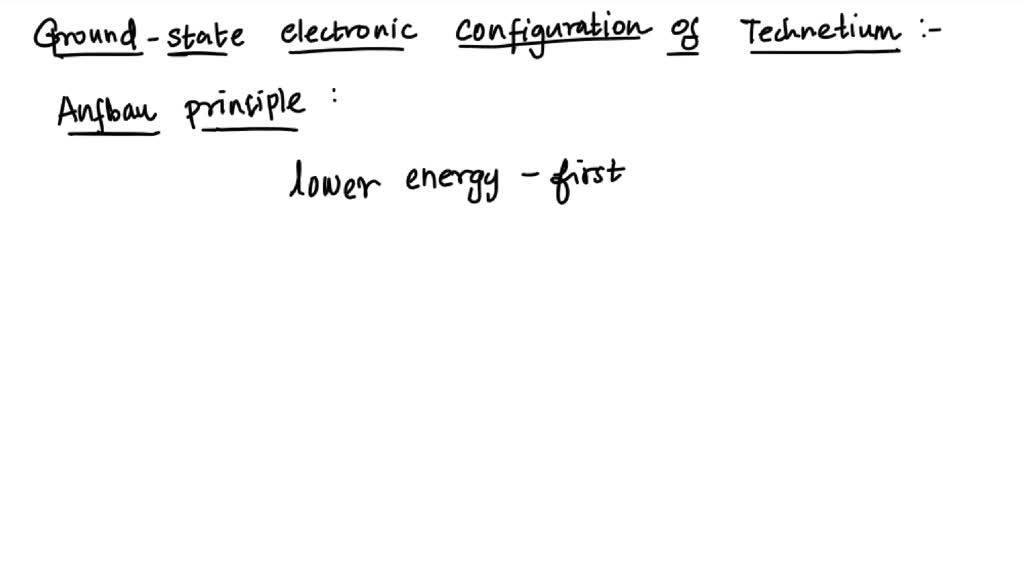 Ground-state electronic configuration of Technetium :-
Aufbau principle :
lower energy - first